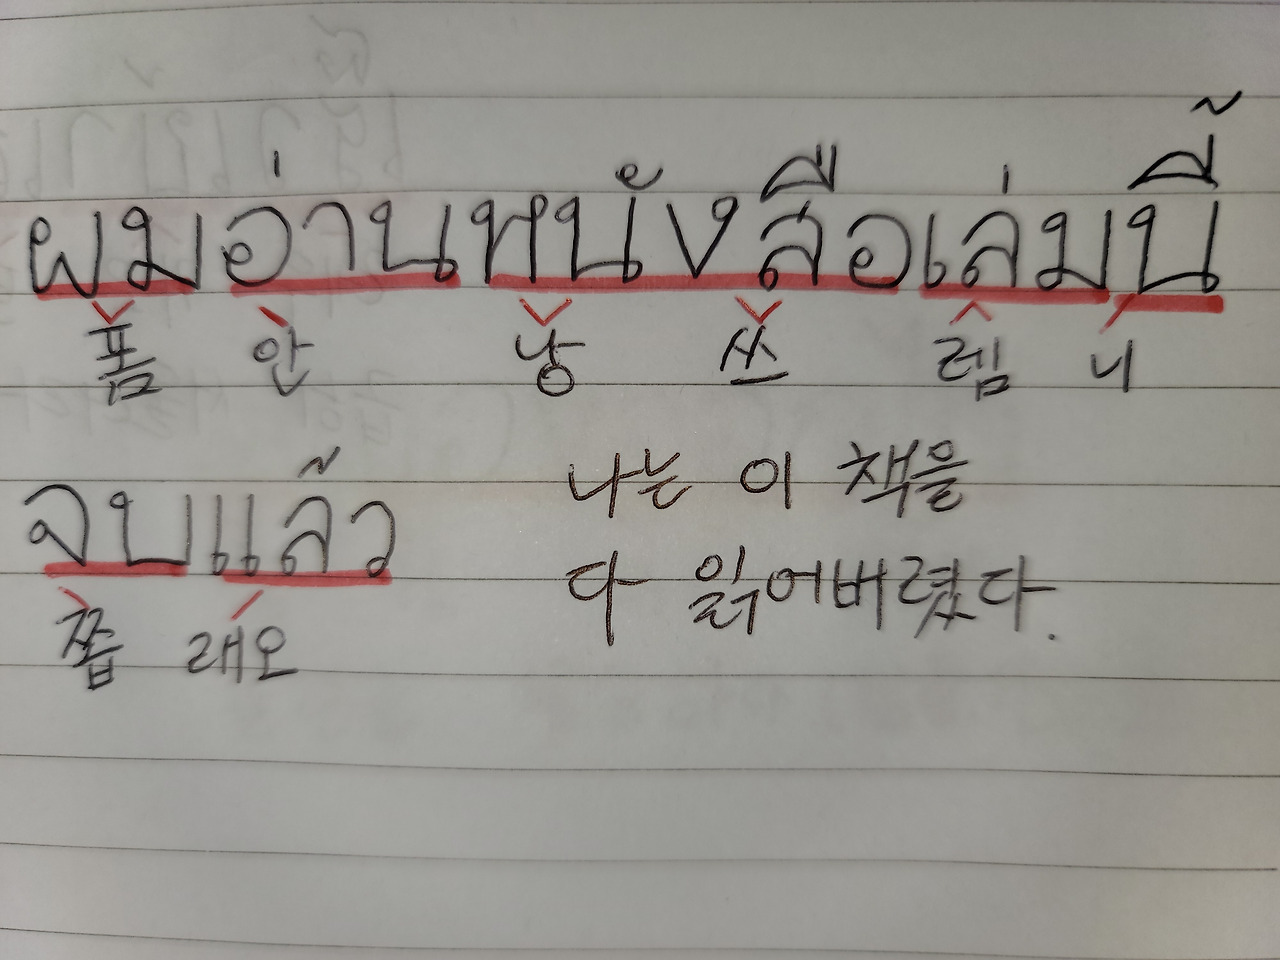 ผมอ่านหนังสือเล่มนี้
폼 안 낭 쓰 렘 니
จบแล้ว
쫍 래오
나는 이 책을
다 읽어버렸다.